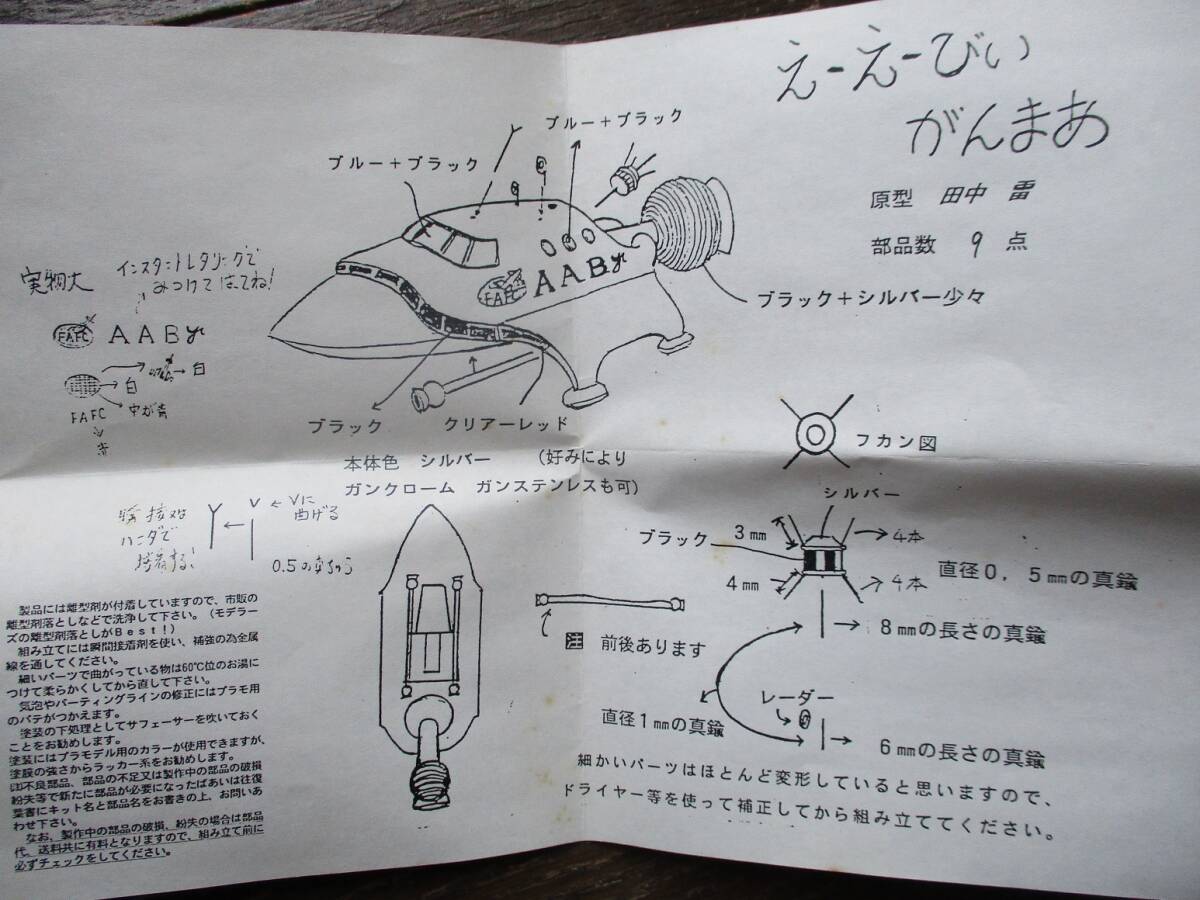 えーえーびぃ
がんまあ
原型 田中 雷
部品数 9 点
ブルー+ブラック
ブルー+ブラック
AABγ
FAFC
ブラック+シルバー少々
ブラック
クリアーレッド
本体色 シルバー (好みにより
ガンクローム ガンステンレスも可)
実物大
インスタントレタリングで
みつけてはってね!
FAFC
AABγ
白
白
FAFC
中が青
赤
ハンダで
接着する!
V
←Vに
曲げる
0.5の真ちゅう
フカン図
シルバー
ブラック
3mm
4mm
4本
4本
直径0,5mmの真鍮
8mmの長さの真鍮
直径1mmの真鍮
レーダー
6mmの長さの真鍮
注 前後あります
細かいパーツはほとんど変形していると思いますので、
ドライヤー等を使って補正してから組み立ててください。
製品には離型剤が付着していますので、市販の
離型剤落としなどで洗浄して下さい。(モデラー
ズの離型剤落としがBest!)
組み立てには瞬間接着剤を使い、補強の為金属
線を通してください。
細いパーツで曲がっている物は60℃位のお湯に
つけて柔らかくしてから直して下さい。
気泡やパーティングラインの修正にはプラモ用
のパテがつかえます。
塗装の下処理としてサフェーサーを吹いておく
ことをお勧めします。
塗装にはプラモデル用のカラーが使用できますが、
塗膜の強さからラッカー系をお勧めします。
不良部品、部品の不足又は製作中の部品の破損
紛失等で新たに部品が必要になったばあいは往復
葉書にキット名と部品名をお書きの上、お問いあ
わせ下さい。
なお、製作中の部品の破損、紛失の場合は部品
代、送料共に有料となりますので、組み立て前に
必ずチェックをしてください。